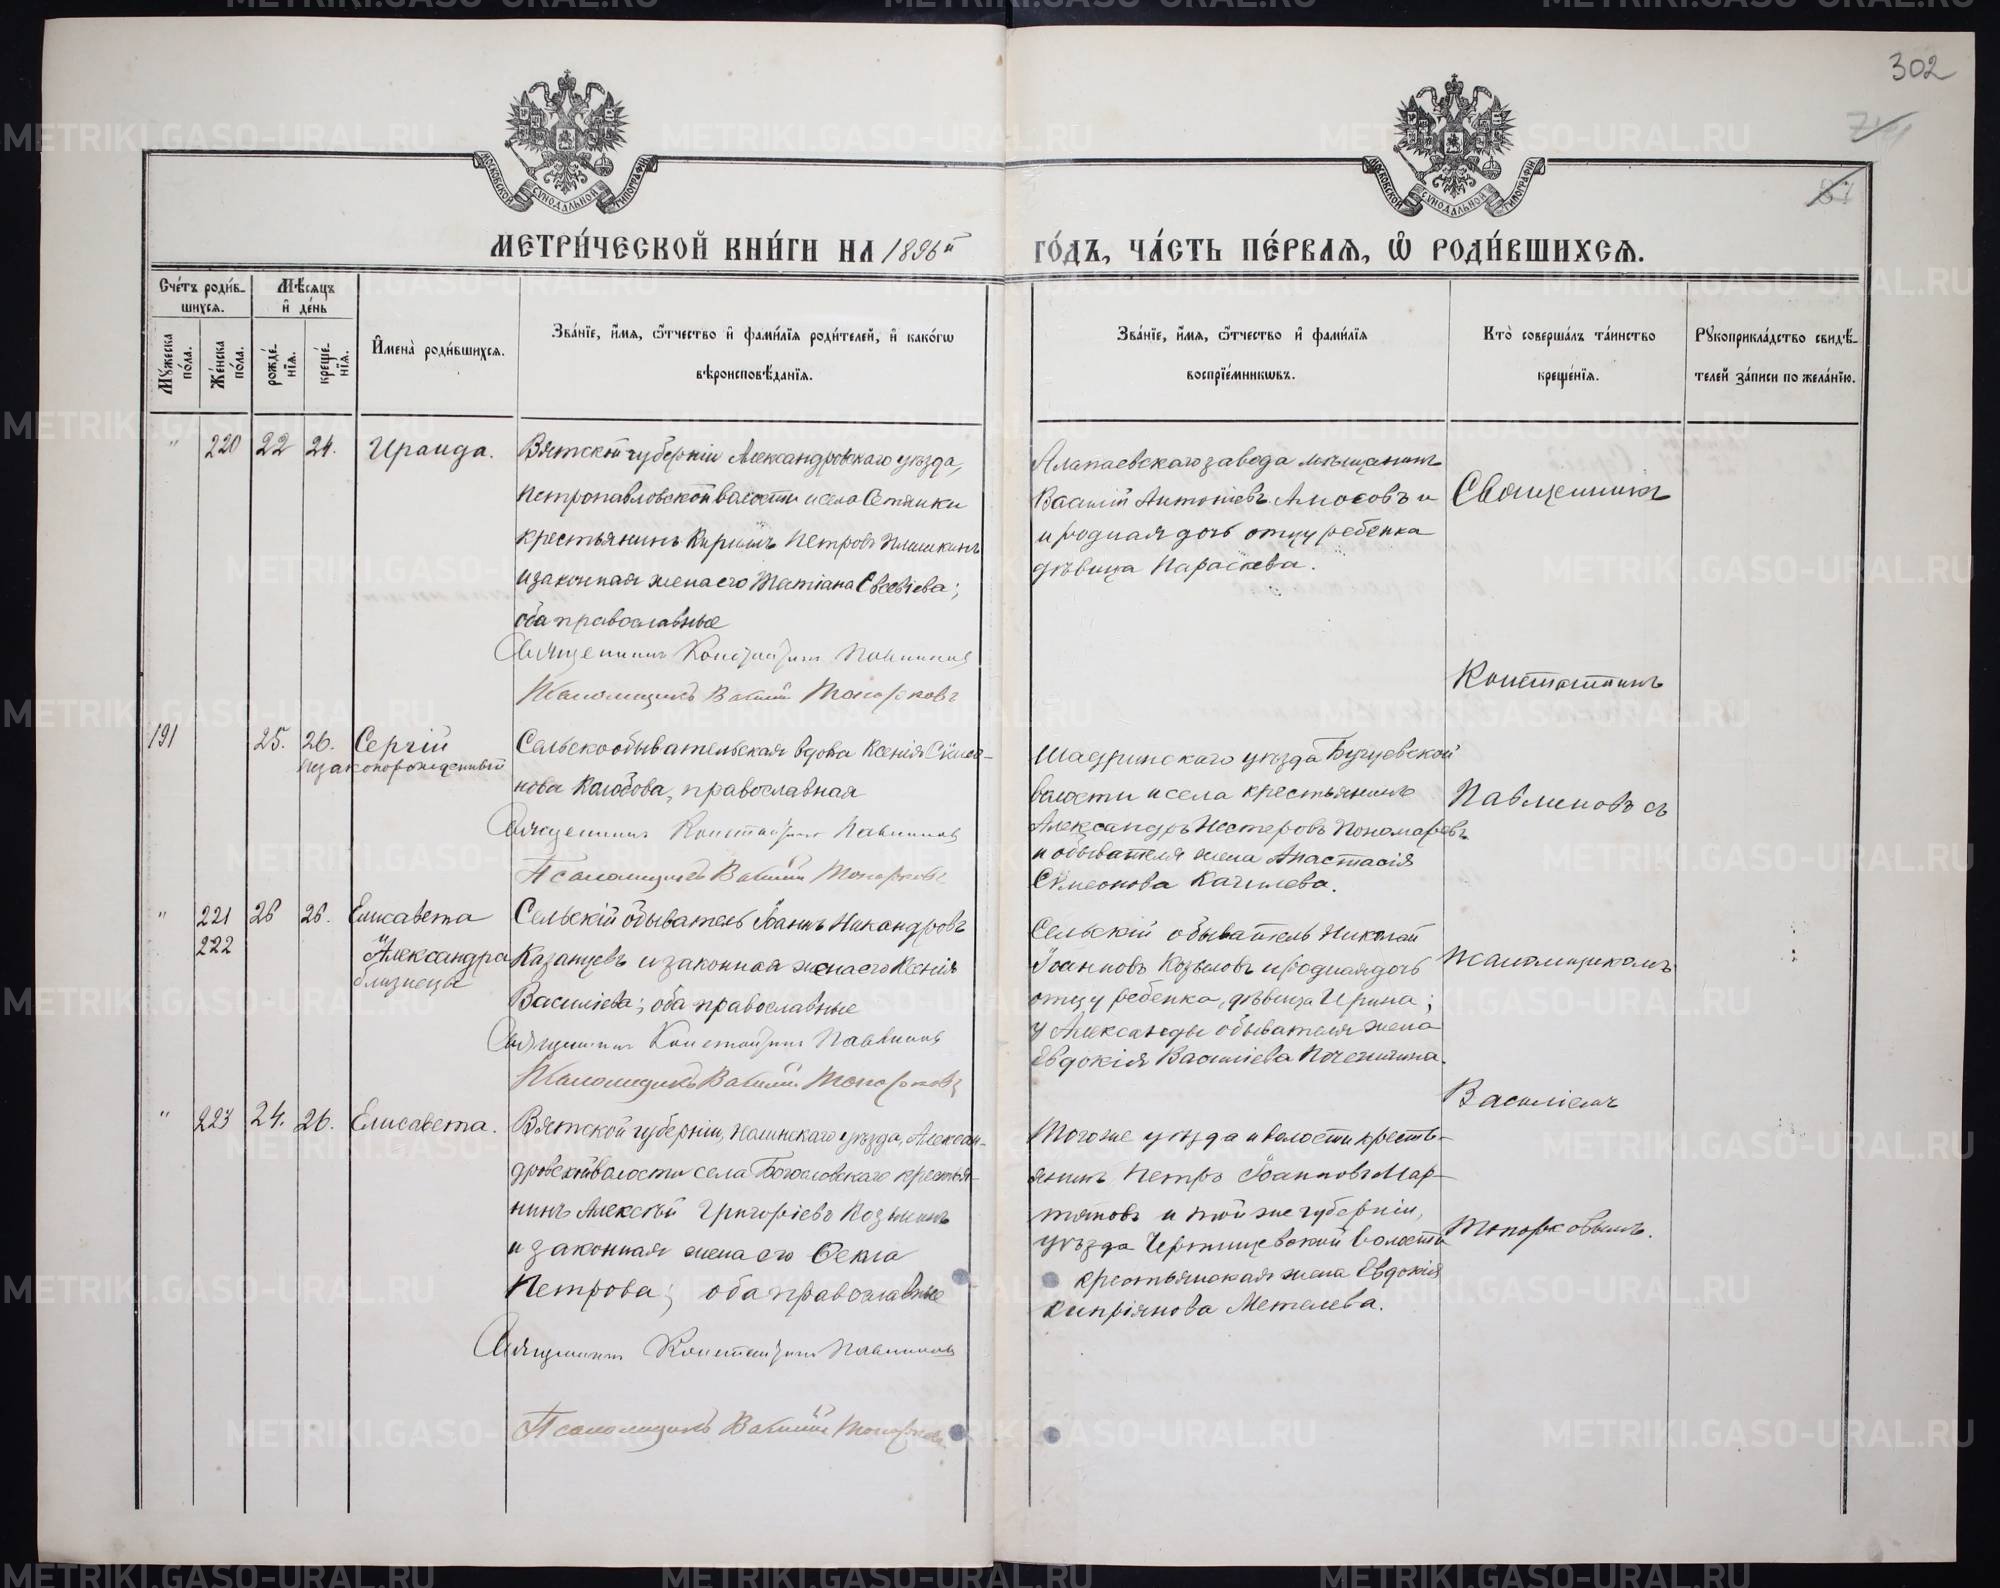 302
МЕТРИ́ЧЕСКОЙ КНИ́ГИ НА 1896й ГО́ДЪ, ЧА́СТЬ ПЕ́РВАЯ, Ѡ РОДИ́ВШИХСЯ.
МОСКОВСКОЙ СѴНОДАЛЬНОЙ ТИПОГРАФІИ
МОСКОВСКОЙ СѴНОДАЛЬНОЙ ТИПОГРАФІИ
Сче́тъ роди́в-
шихся.
Мꙋжеска по́ла.
Же́нска по́ла.
Мѣ́сяцъ
и҆ де́нь
рожде́-
нїя.
креще́-
нїя.
И҆мена̀ роди́вшихся.
Зва́нїе, и҆́мя, ѻ҆́тчество и҆ фами́лїя роди́телей, и҆ како́гѡ
вѣроисповѣ́данїя.
Зва́нїе, и҆́мя, ѻ҆́тчество и҆ фами́лїя
воспрїе́мникѡвъ.
Кто̀ соверша́лъ та́инство
креще́нїя.
Рꙋкоприкла́дство свидѣ́-
телей за́писи по жела́нїю.
" 220 22 24. Ираида.
Вятской губерніи Александровскаго уѣзда,
Петропавловской волости и села
крестьянинъ Кириллъ Петровъ Плишкинъ
и законная жена его Татіана Евсевіева;
оба православные
Священникъ Константинъ Павлиновъ
Псаломщикъ Василій Топорковъ
Алапаевскаго завода мѣщанинъ
Василій Антоніевъ Аносовъ и
и родная дочь отцу ребенка
дѣвица Параскева.
191 25. 26. Сергій
незаконорожденный
Сельскообывательская вдова Ксенія Сѵмео-
нова Колобова, православная
Священникъ Константинъ Павлиновъ
Псаломщикъ Василій Топорковъ
Шадринскаго уѣзда
волости и села крестьянинъ
Александръ Нестеровъ Пономаревъ
и обывателя жена Анастасія
Сѵмеонова Качилева.
" 221 26 26. Елисавета
222 и Александра
близнецы
Сельскій обыватель Іоаннъ Никандровъ
Казанцевъ и законная жена его Ксенія
Василіева; оба православные
Священникъ Константинъ Павлиновъ
Псаломщикъ Василій Топорковъ
Сельскій обыватель Николай
Іоанновъ Козыловъ и родная дочь
отцу ребенка, дѣвица Ирина;
у Александры обывателя жена
Евдокія Василіева
" 223 24. 26. Елисавета.
Вятской губерніи, Нолинскаго уѣзда, Алексан-
дровской волости села Богословскаго крестья-
нинъ Алексѣй Григоріевъ Козьминъ
и законная жена его Ѳекла
Петрова; оба православные
Священникъ Константинъ Павлиновъ
Псаломщикъ Василій Топорковъ
Того же уѣзда и волости кресть-
янинъ Петръ Іоанновъ Мар-
тяновъ и той же губерніи,
уѣзда волости
крестьянская жена Евдокія
Кипріянова Метелева.
Священникъ
Константинъ
Павлиновъ съ
псаломщикомъ
Василіемъ
Топорковымъ.
METRIKI.GASO-URAL.RU